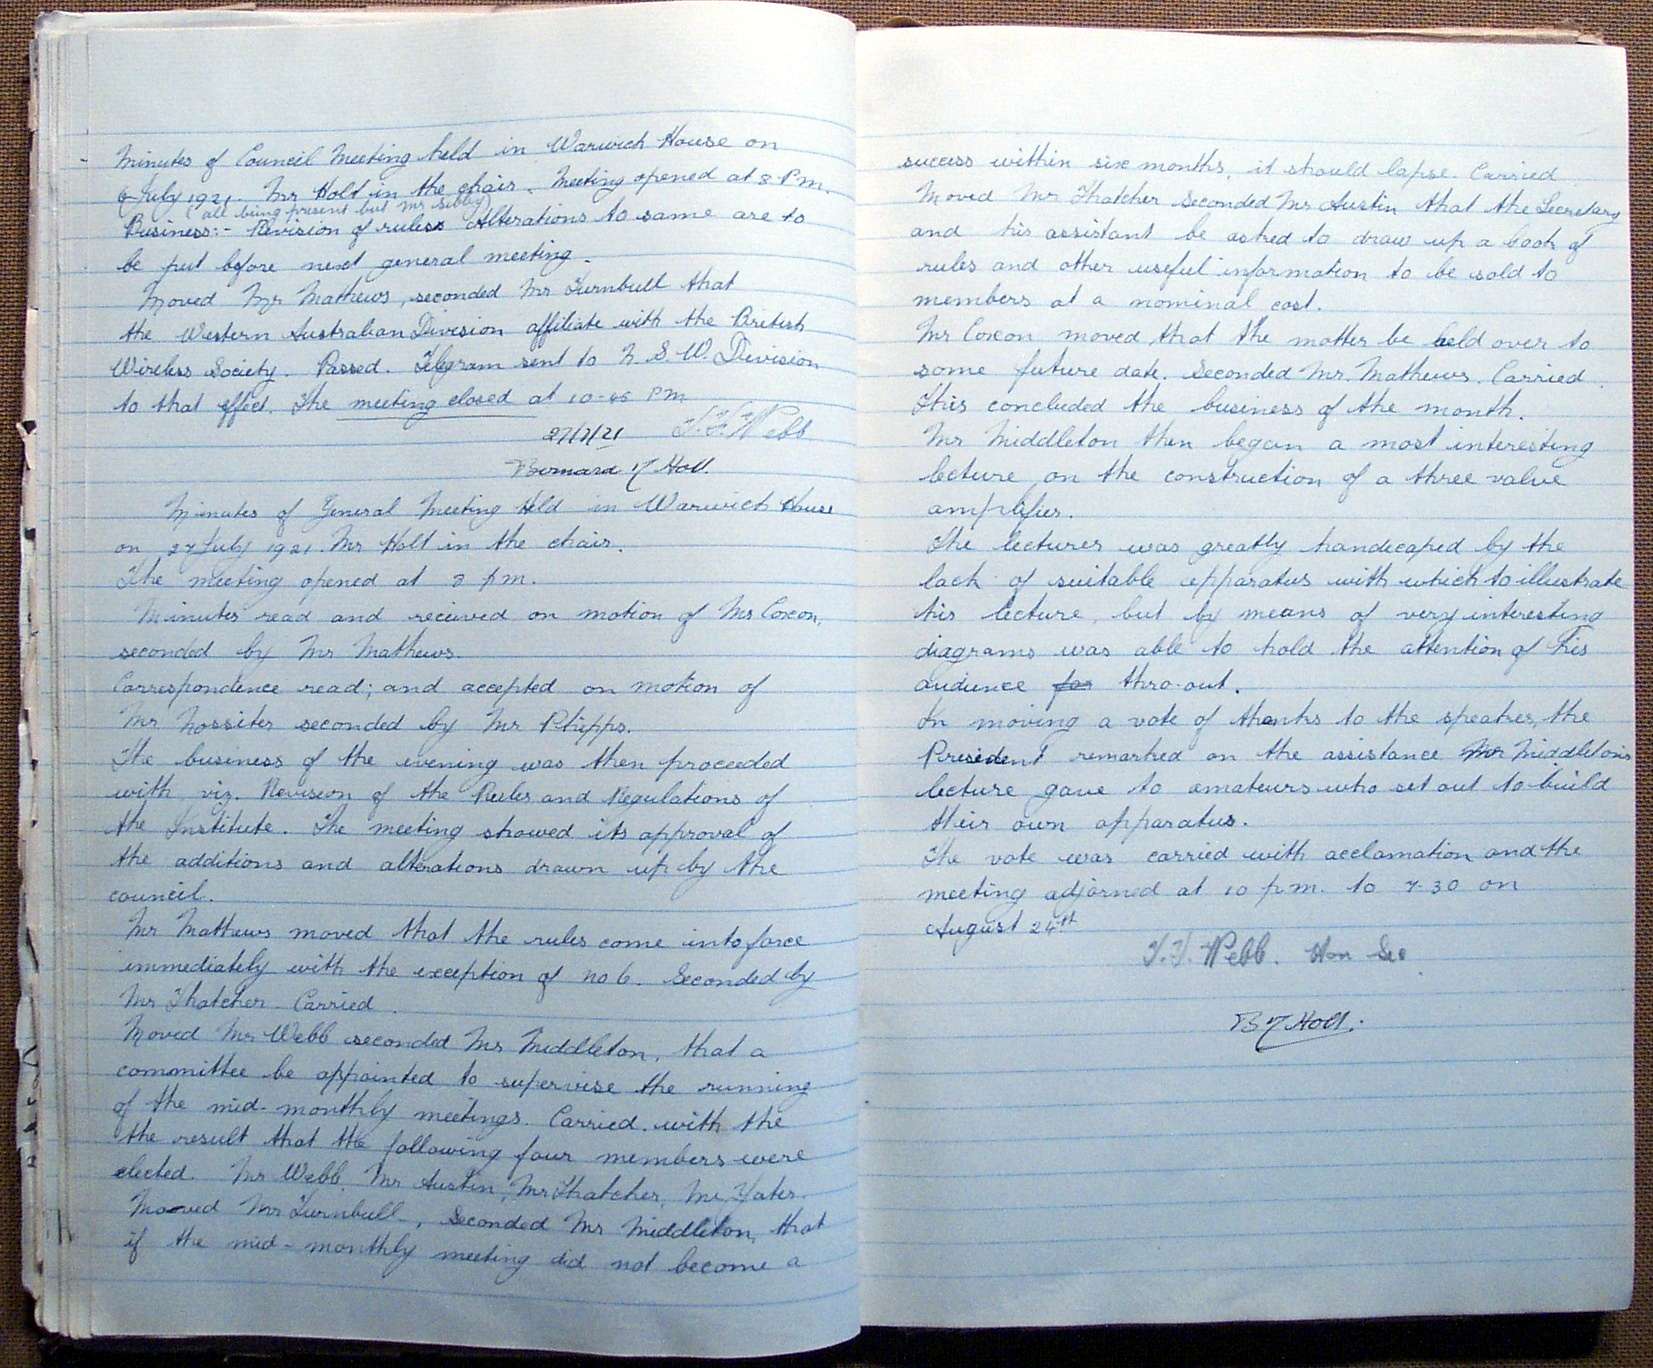 Minutes of Council Meeting held in Warwick House on
6 July 1921. Mr Holt in the chair. Meeting opened at 8 P.m.
(all being present but Mr Sibley)
Business:- Revision of rules Alterations to same are to
be put before next general meeting.
Moved Mr Mathews, seconded Mr Turnbull that
the Western Australian Division affiliate with the British
Wireless Society. Passed. Telegram sent to N.S.W. Division
to that effect. The meeting closed at 10-45 PM
27/7/21 T.F. Webb
Bernard Holt.
Minutes of General Meeting Held in Warwick House
on 27 July 1921. Mr Holt in the chair.
The meeting opened at 8 pm.
Minutes read and received on motion of Mr Coxon,
seconded by Mr Mathews.
Correspondence read; and accepted on motion of
Mr Nossiter seconded by Mr Phipps.
The business of the evening was then proceeded
with viz. Revision of the Rules and Regulations of
the Institute. The meeting showed its approval of
the additions and alterations drawn up by the
council.
Mr Mathews moved that the rules come into force
immediately with the exception of no 6. Seconded by
Mr Thatcher. Carried.
Moved Mr Webb seconded Mr Middleton, that a
committee be appointed to supervise the running
of the mid-monthly meetings. Carried. with the
the result that the following four members were
elected. Mr Webb, Mr Austin, Mr Thatcher, Mr Yates.
Moved Mr Turnbull, Seconded Mr Middleton, that
if the mid-monthly meeting did not become a
success within six months, it should lapse. Carried
Moved Mr Thatcher seconded Mr Austin that the Secretary
and his assistant be asked to draw up a book of
rules and other useful information to be sold to
members at a nominal cost.
Mr Coxon moved that the matter be held over to
some future date. Seconded Mr. Mathews. Carried.
This concluded the business of the month.
Mr Middleton then began a most interesting
lecture on the construction of a three valve
amplifier.
The lecturer was greatly handicaped by the
lack of suitable apparatus with which to illustrate
his lecture, but by means of very interesting
diagrams was able to hold the attention of his
audience for thro-out.
In moving a vote of thanks to the speaker, the
President remarked on the assistance Mr Middleton's
lecture gave to amateurs who set out to build
their own apparatus.
The vote was carried with acclamation and the
meeting adjorned at 10 p.m. to 7-30 on
August 24th
T.F. Webb. Hon Sec
B Holt.